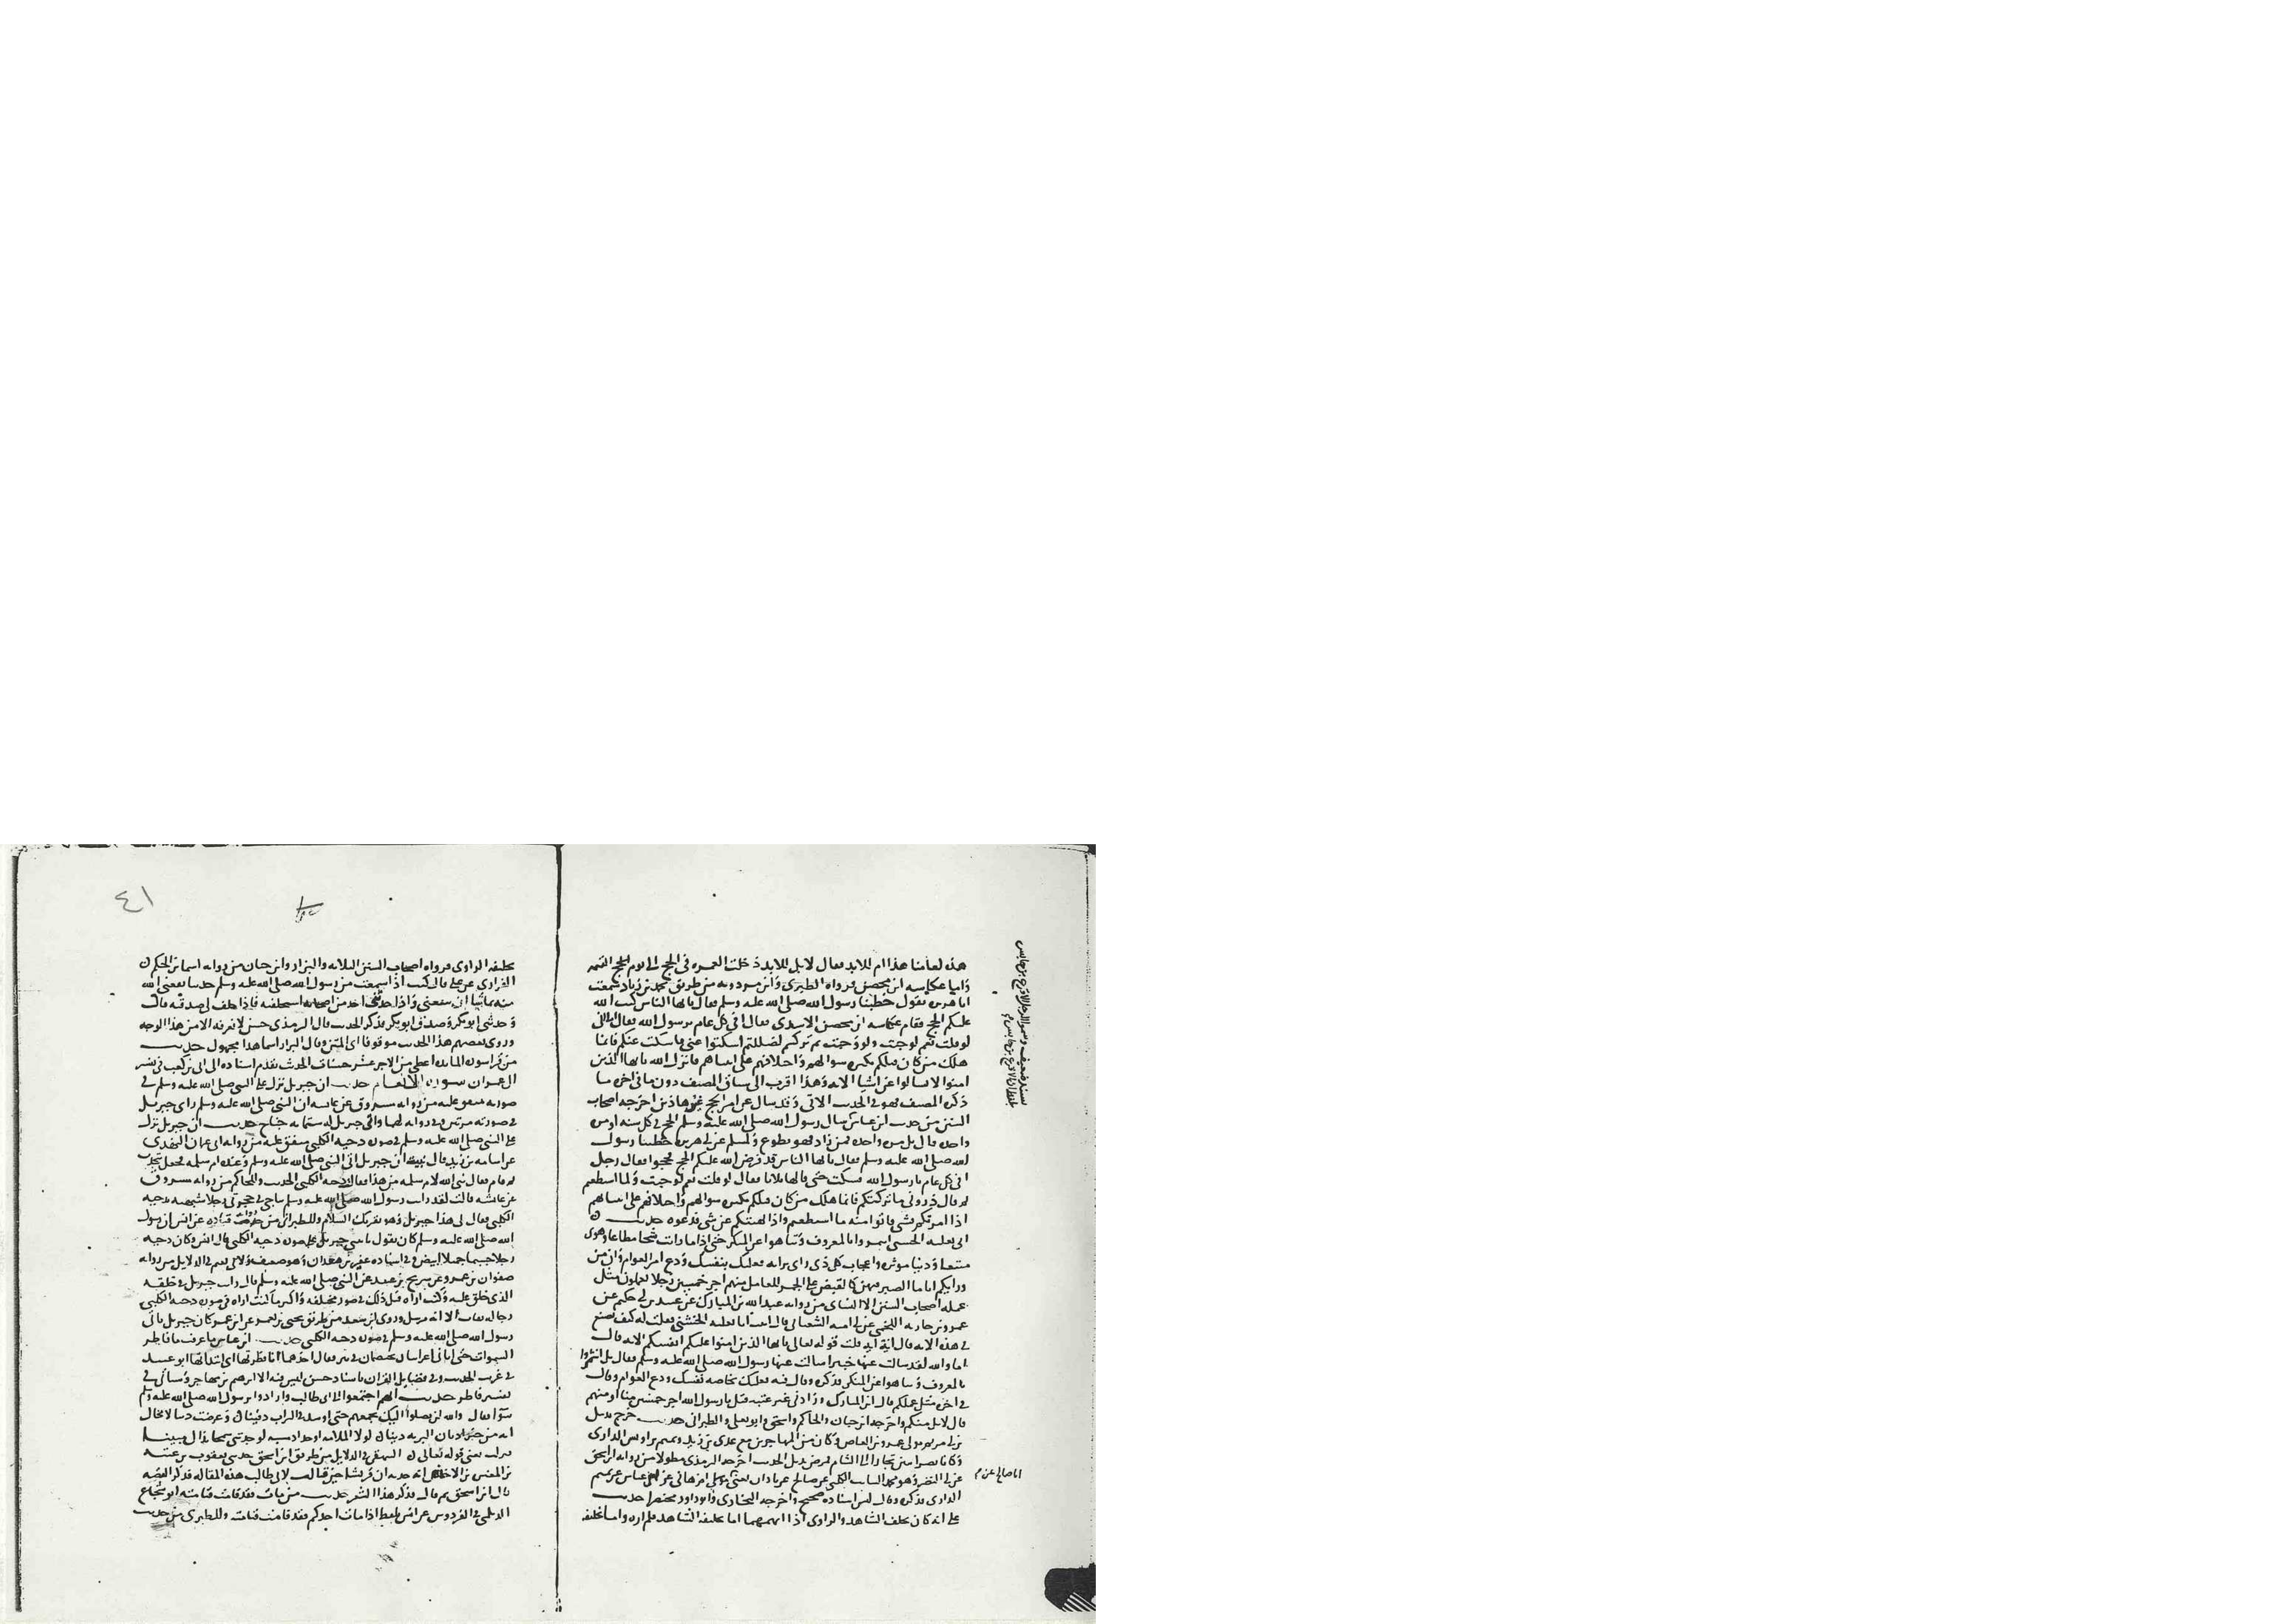 هذه لعامنا هذا ام للابد فقال لا بل للابد دخلت العمره في الحج الى يوم القيمه
واما عكاسه ابن محصن فرواه الطبري وابن مردويه من طريق محمد بن زياد سمعت
ابا هريره يقول خطبنا رسول الله صلى الله عليه وسلم فقال يايها الناس كتب الله
عليكم الحج فقام عكاسه ابن محصن الاسدي فقال افي كل عام يرسول الله فقال اما اني
لو قلت نعم لوجبت ولو وجبت ثم تركتم لضللتم اسكتوا عني ما سكت عنكم فانما
هلك من كان قبلكم بكثره سوالهم واختلافهم على انبياهم فانزل الله يايها الذين
امنوا لا تسالوا عن اشيا الايه وهذا اقرب الى سياق المصنف دون ما في اخره ما
ذكره المصنف فهو في الحديث الاتي وقد سال عن امر الحج غير هاذين اخرجه اصحاب
السنن من حديث ابن عباس سال رسول الله صلى الله عليه وسلم الحج في كل سنه او مره
واحده قال بل مره واحده فمن زاد فهو تطوع ولمسلم عن ابي هريره خطبنا رسول
الله صلى الله عليه وسلم فقال يايها الناس قد فرض الله عليكم الحج فحجوا فقال رجل
افي كل عام يا رسول الله فسكت حتى قالها ثلاثا فقال لو قلت نعم لوجبت ولما استطعتم
ثم قال ذروني ما تركتكم فانما هلك من كان قبلكم بكثره سوالهم واختلافهم على انبياهم
اذا امرتكم بشي فاتوا منه ما استطعتم واذا نهيتكم عن شي فدعوه حديث
ابي ثعلبه الخشني ايتمروا بالمعروف وتناهوا عن المنكر حتى اذا ما رايت شحا مطاعا وهوى
متبعا ودنيا موثره واعجاب كل ذي راي برايه فعليك بنفسك ودع امر العوام وان من
ورايكم اياما الصبر فيهن كالقبض على الجمر للعامل منهم اجر خمسين رجلا يعملون مثل
عمله اصحاب السنن الا النساي من روايه عبد الله بن المبارك عن عتبه بن ابي حكيم عن
عمرو بن جاريه اللخمي عن ابي اميه الشعباني قال اتيت ابا ثعلبه الخشني فقلت له كيف تصنع
في هذه الايه قال ايه ايه قلت قوله تعالى يايها الذين امنوا عليكم انفسكم الايه قال
اما والله لقد سالت عنها خبيرا سالت عنها رسول الله صلى الله عليه وسلم فقال بل ائتمروا
بالمعروف وتناهوا عن المنكر فذكره وقال فيه فعليك بخاصه نفسك ودع العوام وقال
في اخره مثل عملكم قال ابن المبارك وزادني غير عتبه قيل يا رسول الله اجر خمسين منا او منهم
قال لا بل منكم واخرجه ابن حبان والحاكم واسحق وابو يعلى والطبراني حديث خرج بديل
بن ابي مريم مولى عمرو بن العاص وكان من المهاجرين مع عدي بن زيد وتميم بن اوس الداري
وكانا نصرانيين تجارا الى الشام فمرض بديل الحديث اخرجه الترمذي مطولا من روايه ابن اسحق
عن ابي النضر وهو محمد السايب الكلبي عن ابي صالح عن باذان يعني مولى ام هاني عن ابن عباس عن تميم
الداري فذكره وقال ليس اسناده صحيح واخرجه البخاري وابو داود مختصرا حديث
علي انه كان يحلف الشاهد والراوي اذا اتهمهما اما تحليف الشاهد فلم اره واما تحليفه
بسند ضعيف وسمو الرجل الاقرع بن حابس
ابا صالح عن م
٤١
تحليفه الراوي فرواه اصحاب السنن الثلاثه والبزار وابن حبان من روايه اسما بن الحكم
الفزاري عن علي قال كنت اذا سمعت من رسول الله صلى الله عليه وسلم حديثا نفعني الله
منه بما شا ان ينفعني واذا حدثني احد من اصحابه استحلفته فاذا حلف لي صدقته قال
وحدثني ابو بكر وصدق ابو بكر فذكر الحديث قال الترمذي حسن لا نعرفه الا من هذا الوجه
وروى بعضهم هذا الحديث موقوفا اي المتن وقال البزار اسما هذا مجهول حديث
من قرا سوره المايده اعطي من الاجر عشر حسنات الحديث تقدم اسناده الى ابي بن كعب في تفسير
ال عمران سوره الانعام حديث ان جبريل نزل على النبي صلى الله عليه وسلم في
صورته متفق عليه من روايه مسروق عن عايشه ان النبي صلى الله عليه وسلم راى جبريل
في صورته مرتين وفي روايه لهما راى جبريل له ستمايه جناح حديث ان جبريل نزل
على النبي صلى الله عليه وسلم في صوره دحيه الكلبي متفق عليه من روايه ابي عثمان النهدي
عن اسامه بن زيد قال نبيت ان جبريل اتى النبي صلى الله عليه وسلم وعنده ام سلمه فجعل يتحدث
ثم قام فقال نبي الله لام سلمه من هذا فقالت دحيه الكلبي الحديث والحاكم من روايه مسروق
عن عايشه قالت لقد رايت رسول الله صلى الله عليه وسلم يناجي في حجرتي رجلا شبهته بدحيه
الكلبي فقال لي هذا جبريل وهو يقريك السلام وللطبراني من روايه قتاده عن انس ان رسول
الله صلى الله عليه وسلم كان يقول ياتيني جبريل على صوره دحيه الكلبي قال انس وكان دحيه
رجلا جسيما جميلا ابيض وفي اسناده عفير بن معدان وهو ضعيف ولابي نعيم في الدلايل من روايه
صفوان بن عمرو عن شريح بن عبيد عن النبي صلى الله عليه وسلم قال رايت جبريل في خلقه
الذي خلق عليه وكنت اراه قبل ذلك في صور مختلفه واكثر ما كنت اراه في صوره دحيه الكلبي
رجاله ثقات الا انه مرسل وروى ابن سعد من طريق يحيى بن يعمر عن ابن عمر كان جبريل ياتي
رسول الله صلى الله عليه وسلم في صوره دحيه الكلبي حديث ابن عباس ما عرفت ما فاطر
السموات حتى اتاني اعرابيان يختصمان في بير فقال احدهما انا فطرتها اي ابتداتها ابو عبيد
في غريب الحديث وفي فضايل القران باسناد حسن ليس فيه الا ابراهيم بن مهاجر وسياتي في
تفسير فاطر حديث انهم اجتمعوا الى ابي طالب وارادوا برسول الله صلى الله عليه وسلم
سوا فقال والله لن يصلوا اليك بجمعهم حتى اوسد في التراب دفينا وعرضت دينا لا محال
انه من خير اديان البريه دينا لولا الملامه او حذار مسبه لوجدتني سمحا بذاك مبينا
فنزلت يعني قوله تعالى البيهقي في الدلايل من طريق ابن اسحق حدثني يعقوب بن عتبه
بن المغيره بن الاخنس انه حدث ان قريشا حين قالت لابي طالب هذه المقاله فذكر القصه
قال ابن اسحق ثم قال فذكر هذا الشعر حديث من مات فقد قامت قيامته ابو شجاع
الديلمي في الفردوس عن انس بلفظ اذا مات احدكم فقد قامت قيامته وللطبري من حديث